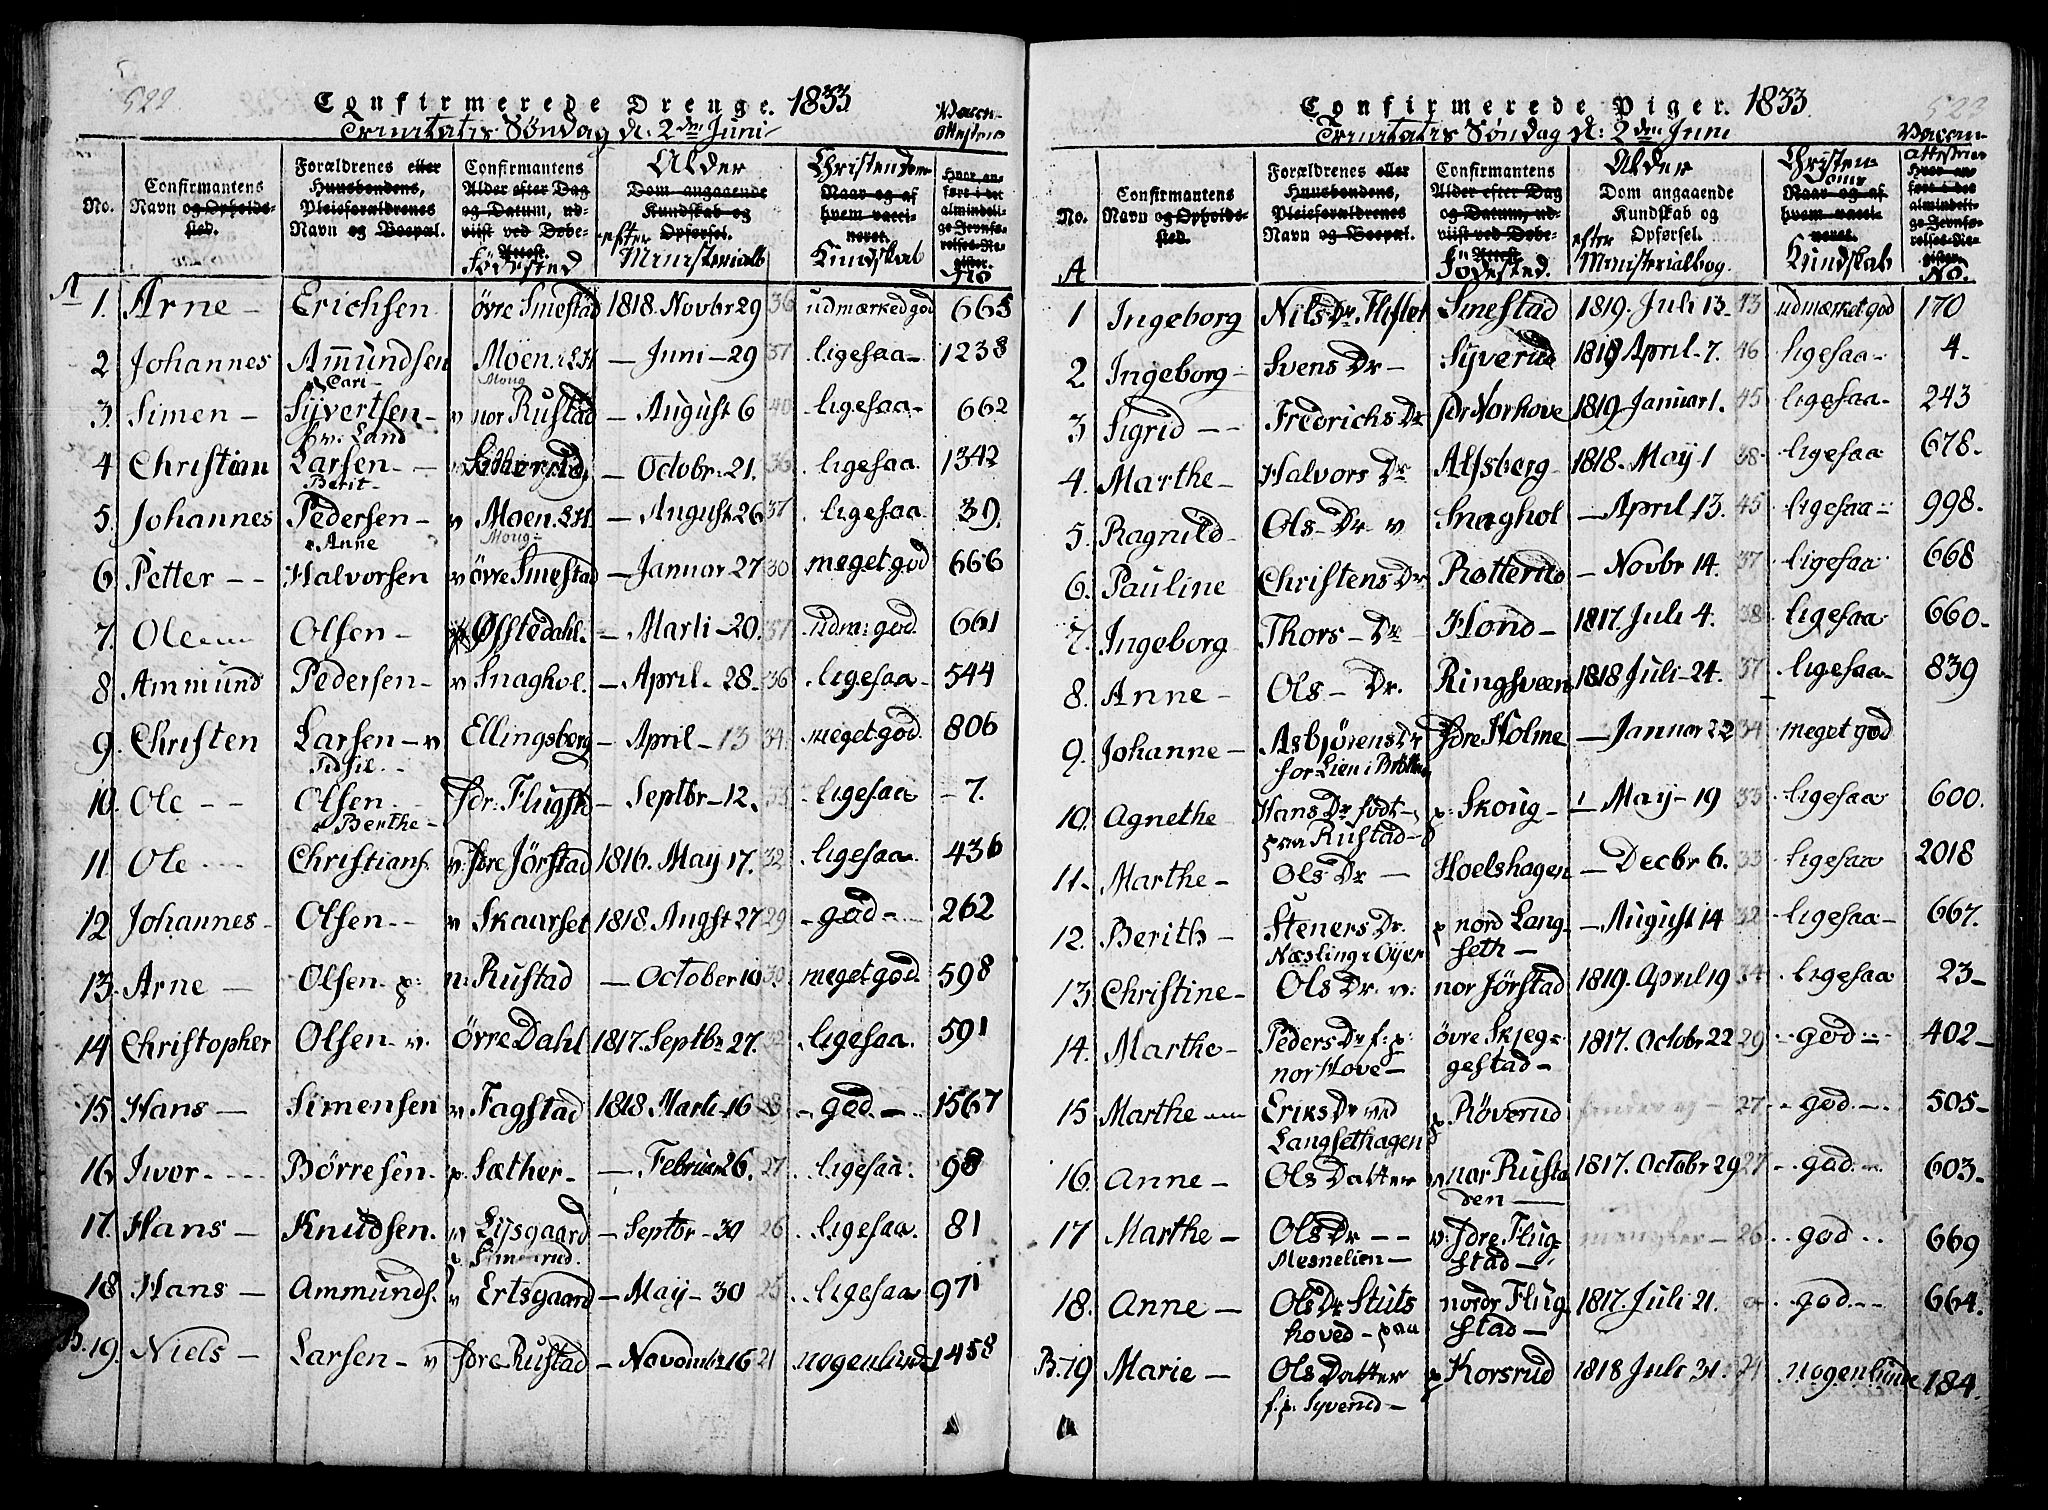 522.
Confirmerede Drenge. 1833
Trinitatis Söndag d: 2den Juni
Vaccin-
Attesters
No.
Confirmantens
Navn og Opholds-
sted.
Forældrenes eller
Huusbondens,
Pleieforældrenes
Navn og Boepæl.
Confirmantens
Alder efter Dag
og Datum, ud-
viist ved Døbe-
Attest.
Födested
Alder
Dom angaaende
Kundskab og
Opførsel.
efter
Ministerialb
Christendoms
Naar og af
hvem vacci-
neret.
Kundskab
Hvor an-
ført i det
almindeli-
ge Jevnfø-
relses-Re-
gister.
No
A
1. Arne — Erichsen övre Smestad 1818. Novbr 29 36 udmærked god 665
2 Johannes Ammundsen Möen. — Juni — 29 37 ligesaa — 1238
Moug
3. Simen — Syvertsen — v nor Rustad — August 6 40 ligesaa — 662
Land
4 Christian Larsen — — Octobr. 21. ligesaa. 1342
Berit —
5. Johannes Pedersen — v Moen. — August 26 37 ligesaa. 39.
Anne
Moug
6. Petter — — Halvorsen v övre Smestad — Januar 27 30 meget god 666
7. Ole Olsen — Øfstedahl. — Marti — 20. 37 udm: god. 661
8 Ammund Pedersen — v Snaghol. — April. 28. 36 ligesaa — 544
9. Christen Larsen — v Ellingsberg — April — 13 34. meget god. 806
Sidsil —
10. Ole — — Olsen. — Sdr: Flugst — Septbr — 12. 33 ligesaa — 7.
Berthe —
11. Ole — Christians. v. Sdre Jörstad 1816. May 17. 32 ligesaa. 436
12 Johannes — Olsen — — v Skaarset 1818. Augst 27 29 — god — 262
13. Arne — Olsen. p: n: Rustad — October 10 30 meget god. 598
14 Christopher Olsen — v. övre Dahl 1817. Septbr 27. 32 ligesaa. 591
15 Hans — Simensen v Fagstad 1818. Marti — 16 28 — god. — 1567
16. Iver — Börresen. p. Sæther — — Februar 26. 27 ligesaa: 98
17. Hans — Knudsen. v Lysgaard — Septbr — 30 26 ligesaa. 81
18 Hans — Ammunds. v Ertsgaard — May — 30 25 ligesaa 971
B. 19. Niels — Larsen — v Sdre Rustad — Novombr 16 21 nogenlunde 1458
523
Confirmerede Piger. 1833.
Trinitatis Söndag d: 2den Juni
Vaccin-
Attester
No.
Confirmantens
Navn og Opholds-
sted.
Forældrenes eller
Huusbondens,
Pleieforældrenes
Navn og Boepæl.
Confirmantens
Alder efter Dag
og Datum, ud-
viist ved Døbe-
Attest.
Födested.
Alder
Dom angaaende
Kundskab og
Opførsel.
efter
Ministerialbog.
Christen-
doms
Naar og af
hvem vacci-
neret.
Kundskab
Hvor an-
ført i det
almindeli-
ge Jevnfø-
relses-Re-
gister.
No.
A
1 Ingeborg Nils Dr. Smestad 1819. Juli 13. 43 udmærket god 170
2 Ingeborg — Svens Dr — Syverud 1818 April. 7. 46 ligesaa — 4.
3 Sigrid — — Fredrichs Dr Sdr Norhove 1819 Januar 1. 45 ligesaa. 243
4. Marthe — Halvors Dr Alfsberg — 1818. May 1 38. ligesaa 678.
5. Ragnild — Ols — Dr v Snaghol — April 13. 45 ligesaa — 998.
6. Pauline Christens Dr Rotterud — Novbr 14. 37 ligesaa 668
7. Ingeborg Thors — Dr Hond — 1817. Juli 4. 38 ligesaa 660.
8. Anne — Ols — Dr. Ringsveen 1818 Juli — 24. 37 ligesaa — 839
9. Johanne — Asbjörens Dr Sdre Holme — Januar 22 34 meget god
10. Agnethe Hans Dr födt p: Skoug — — May — 19 33 ligesaa 600.
paa Rustad
11. Marthe — Ols Dr — Hoelshagen — Decbr 6. 33 ligesaa 2018
12. Berith — Steners Dr. p nord Lang- — August 14 32 ligesaa — 667.
Næsling i Öyer seth —
13 Christine — Ols Dr. v. nor Jörstad 1819. April 19 34 ligesaa 23 —
14. Marthe — Peders Dr f: p: övre Skjeg- 1817. Octobr 22 29 — god — 402 —
nor Hove — gestad —
15 Marthe Eriks Dr ved p Röverud 27 — god — 505 —
Langsethagen
16. Anne — Ols Datter v nor Rusta 1817. Octobr 29 27 — god. — 603 —
den —
17 Marthe — Ols Dr — — v. Sdre Flug- 26 god 669
Mesnelien — stad —
18. Anne — Ols Dr Stuts nordr Flug 1817. Juli 21. — god — 664.
hoved — paa stad —
B. 19 Marie — Ols Datter p Korsrud 1818 Juli 31. 24 nogenlunde 184.
f. p: Syverud —